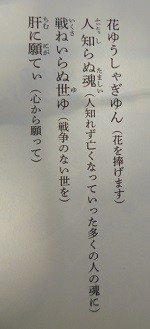 花ゆうしゃぎゆん(花を捧げます)
人知らぬ魂(人知れず亡くなっていった多くの人の魂に)
戦ねいらぬ世ゆ(戦争のない世を)
肝に願てぃ(心から願って)